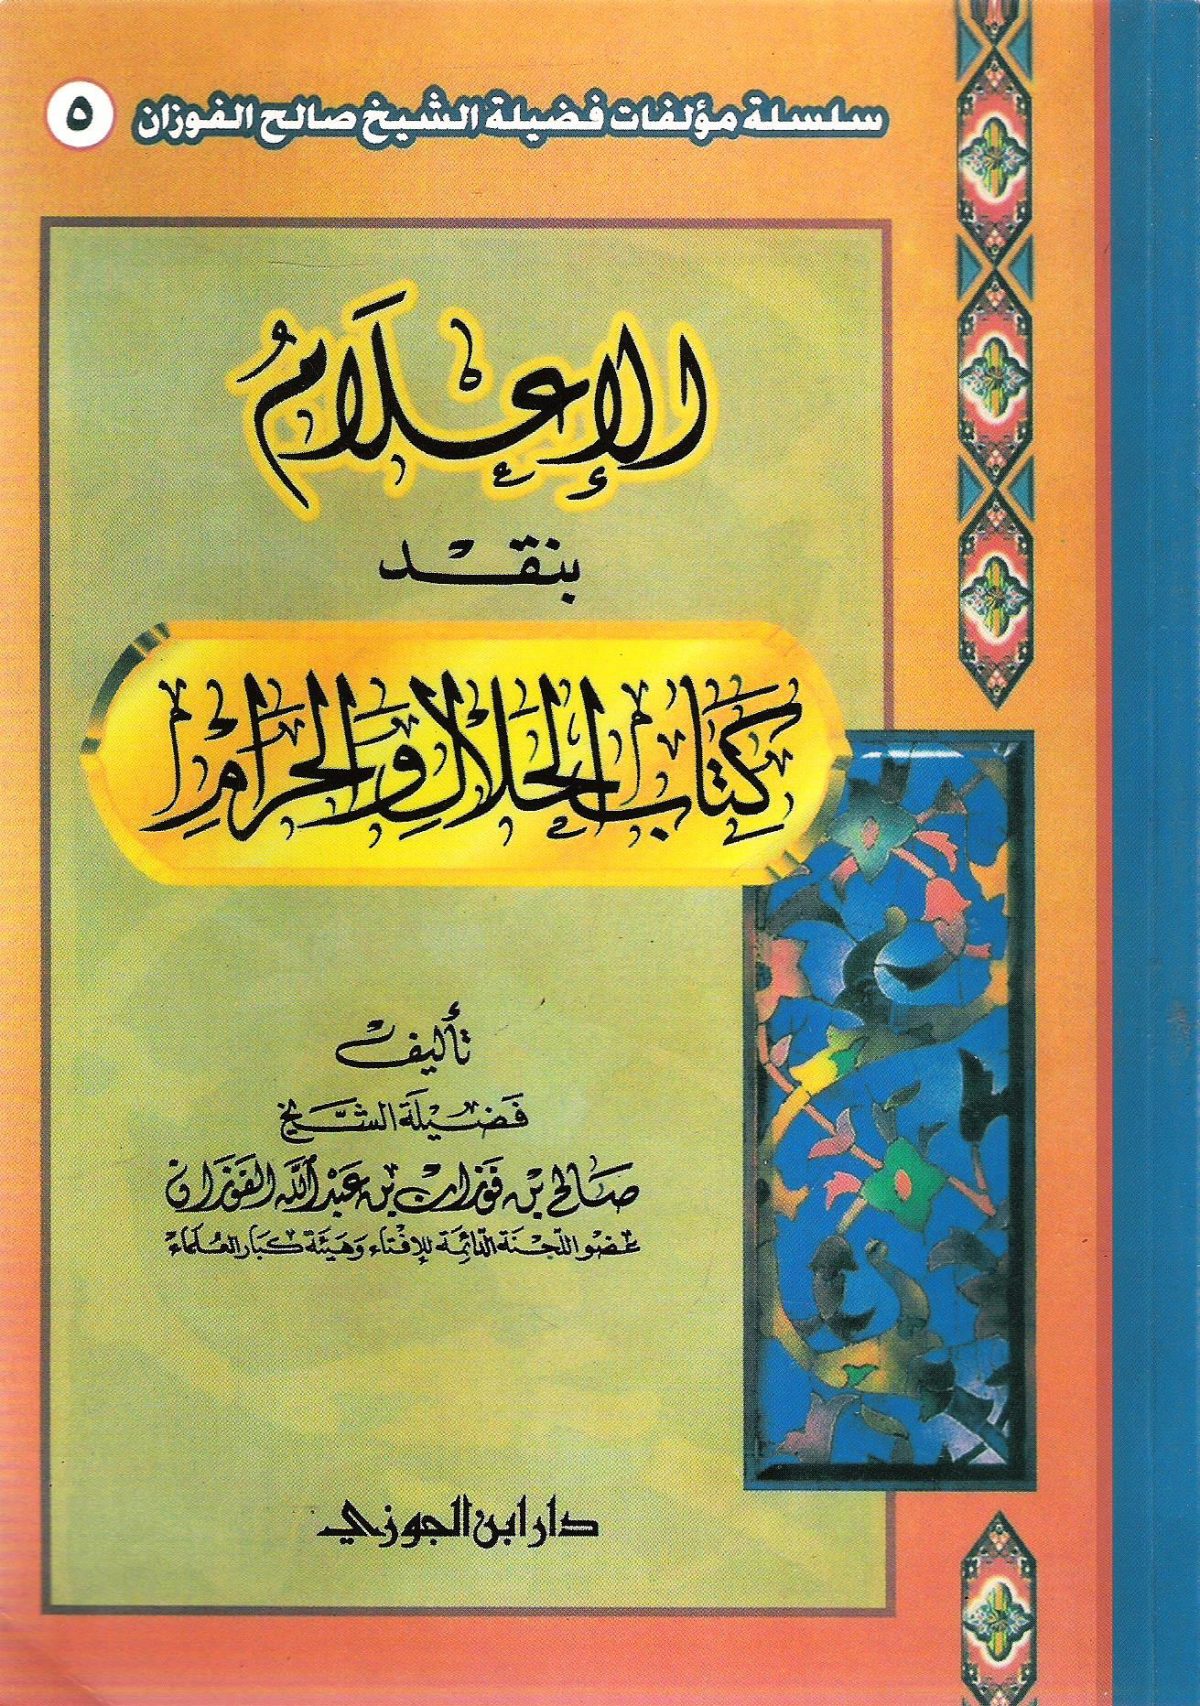 سلسلة مؤلفات فضيلة الشيخ صالح الفوزان ٥
الإعلامُ
بنقد
كِتَاب الحَلَالِ وَالحَرَامِ
تأليف
فَضيلَة الشَّيْخ
صَالح بْن فَوْزان بْن عَبْد اللَّه الفَوْزَان
عضو اللّجنَة الدّائِمَة للإفْتَاء وَهَيئة كبَار العُلمَاء
دار ابن الجوزي